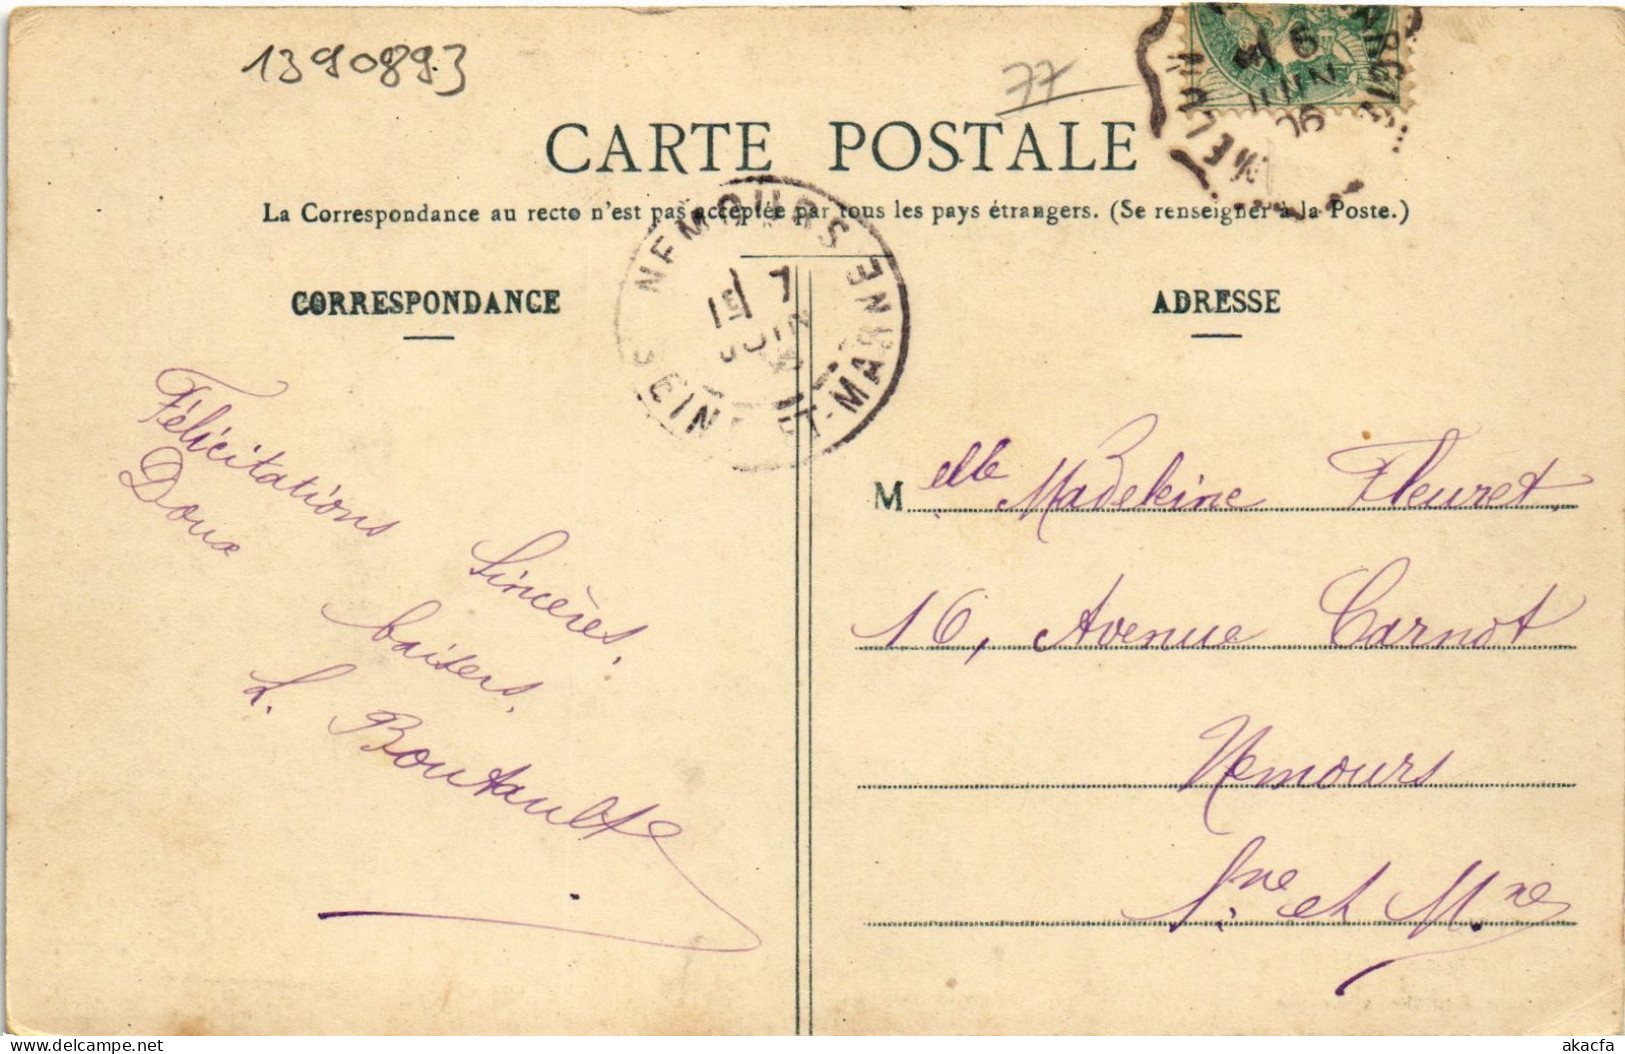 1390893
77
CARTE POSTALE
La Correspondance au recto n'est pas acceptée par tous les pays étrangers. (Se renseigner à la Poste.)
NEMOURS
SEINE-ET-MARNE
MELUN
CORRESPONDANCE
ADRESSE
Félicitations sincères,
Doux baisers,
L. Boutault
Melle Madeleine Fleuret,
16, Avenue Carnot
Nemours
S.ne et M.ne
akacfa